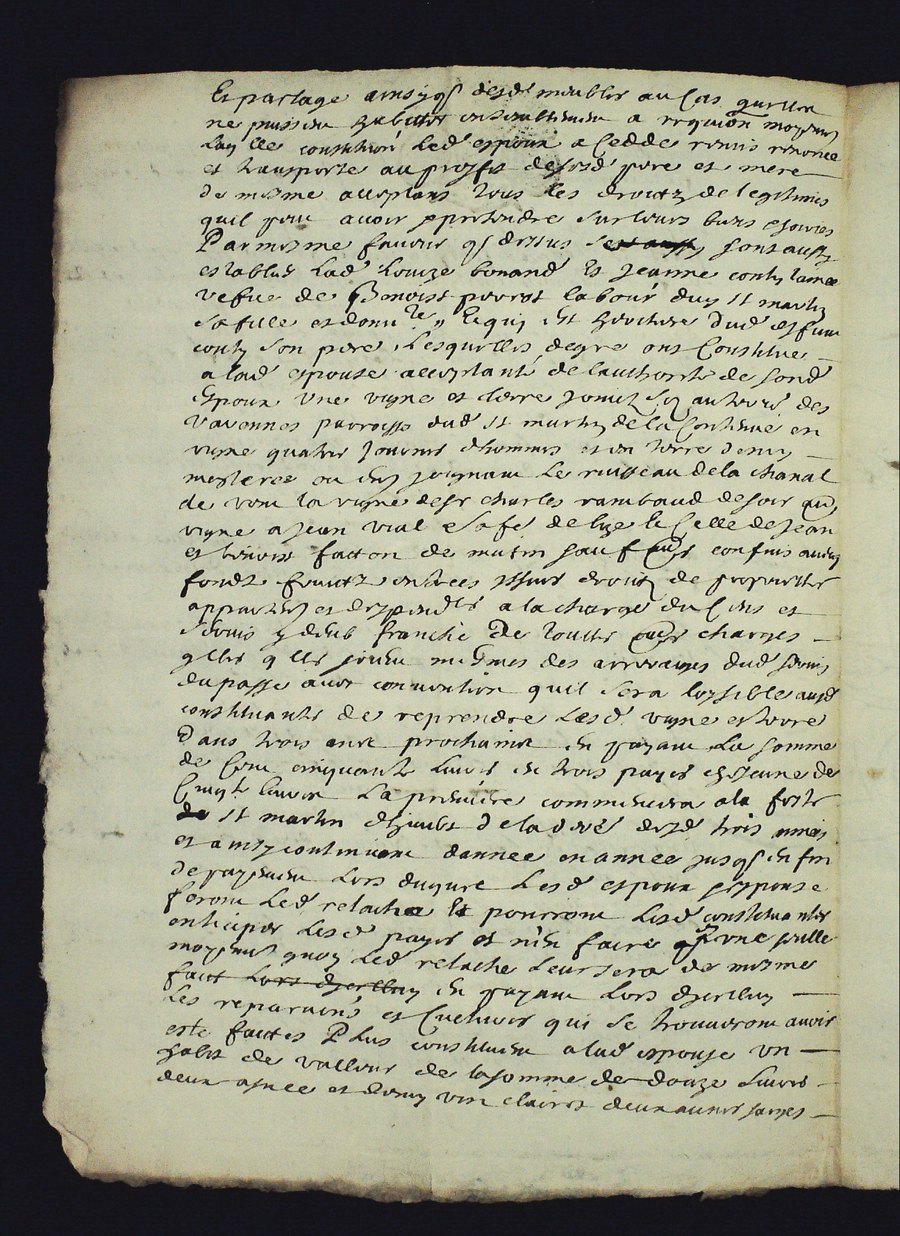 Et partage ainsy q̃ desd meubles au Cas quelles
ne puissent habitter ensemblement a requion moyenn
Laqlle constitũon Led espoux a Cedde remis renonce
et transporte au proffit desesd pere et mere
de mesme acceptans tous les droictz de legitimes
quil peut avoir & pretendre sur leurs biens &
Par mesme faveur q̃ dessus sont aussy
establies Lad Louize bonand Et Jeanne
vefue de Benoist perrot labour dud st martin
sa fille et donn.re Et qui est heritiere dud estienne
son pere Lesquelles de gre ont Constitue
a lad espouse acceptant de lauthorite de sond
Espoux Une vigne et terre
varennes parroisse dud st martin de la Contenue en
vigne quatre journees dhommes et en terre demy
mesteree ou env joignant Le ruisseau de la chanal
de vent la vigne de sr charles rambaud de soir
vigne a Jean vial de bize Celle de Jean
et benoist fatton de matin sauf confins avecq
fondz fruictz entrees yssues droictz de proprietes
appartces et deppendces a la charge du Cens et
servis y deub franche De touttes charges
q̃lles mesmes des arrerages dud servis
du passe avec convention quil sera loysible ausd
constituants de reprendre Lesd vigne et terre
Dans trois ans prochains En payant La somme
de Cent cinquante Livres en trois payes chacune de
Cinq.te livres La premiere commencera a la feste
st martin dhiuert desd trois annees
et ainsy continuant dannee en annee jusq̃ en fin
de payement Lors duquel Lesd espoux & espouse
feront Led relache Et pourront Lesd constituants
enticiper Lesd payes et nen faire q̃ une seulle
moyenn quoy Led relache Leur sera de mesme
faict en payant Lors dicelluy
Les reparaõns et Cultures qui se trouveront avoir
este faittes Plus constituent a lad espouse un
habit de valleur de la somme de douze Livres
deux asnee et demy vin clairet deux aunes sarges